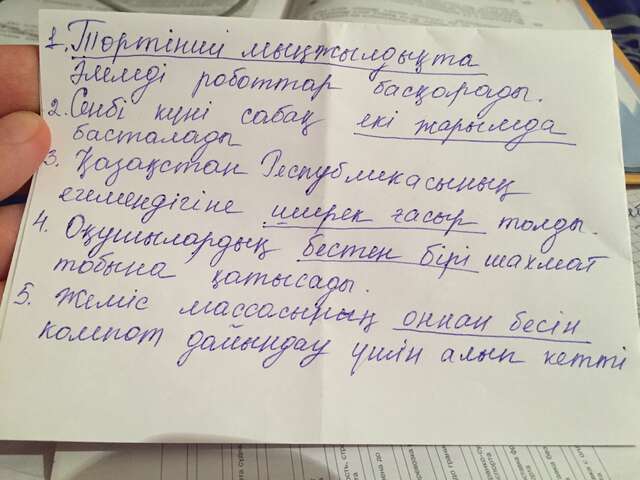 1. Төртінші мыңжылдықта
Әлемді роботтар басқарады.
2. Сенбі күні сабақ екі жарымда
басталады
3. Қазақстан Республикасының
егемендігіне ширек ғасыр толды.
4. Оқушылардың бестен бірі шахмат
тобына қатысады.
5. Жеміс массасының оннан бесін
компот дайындау үшін алып кетті